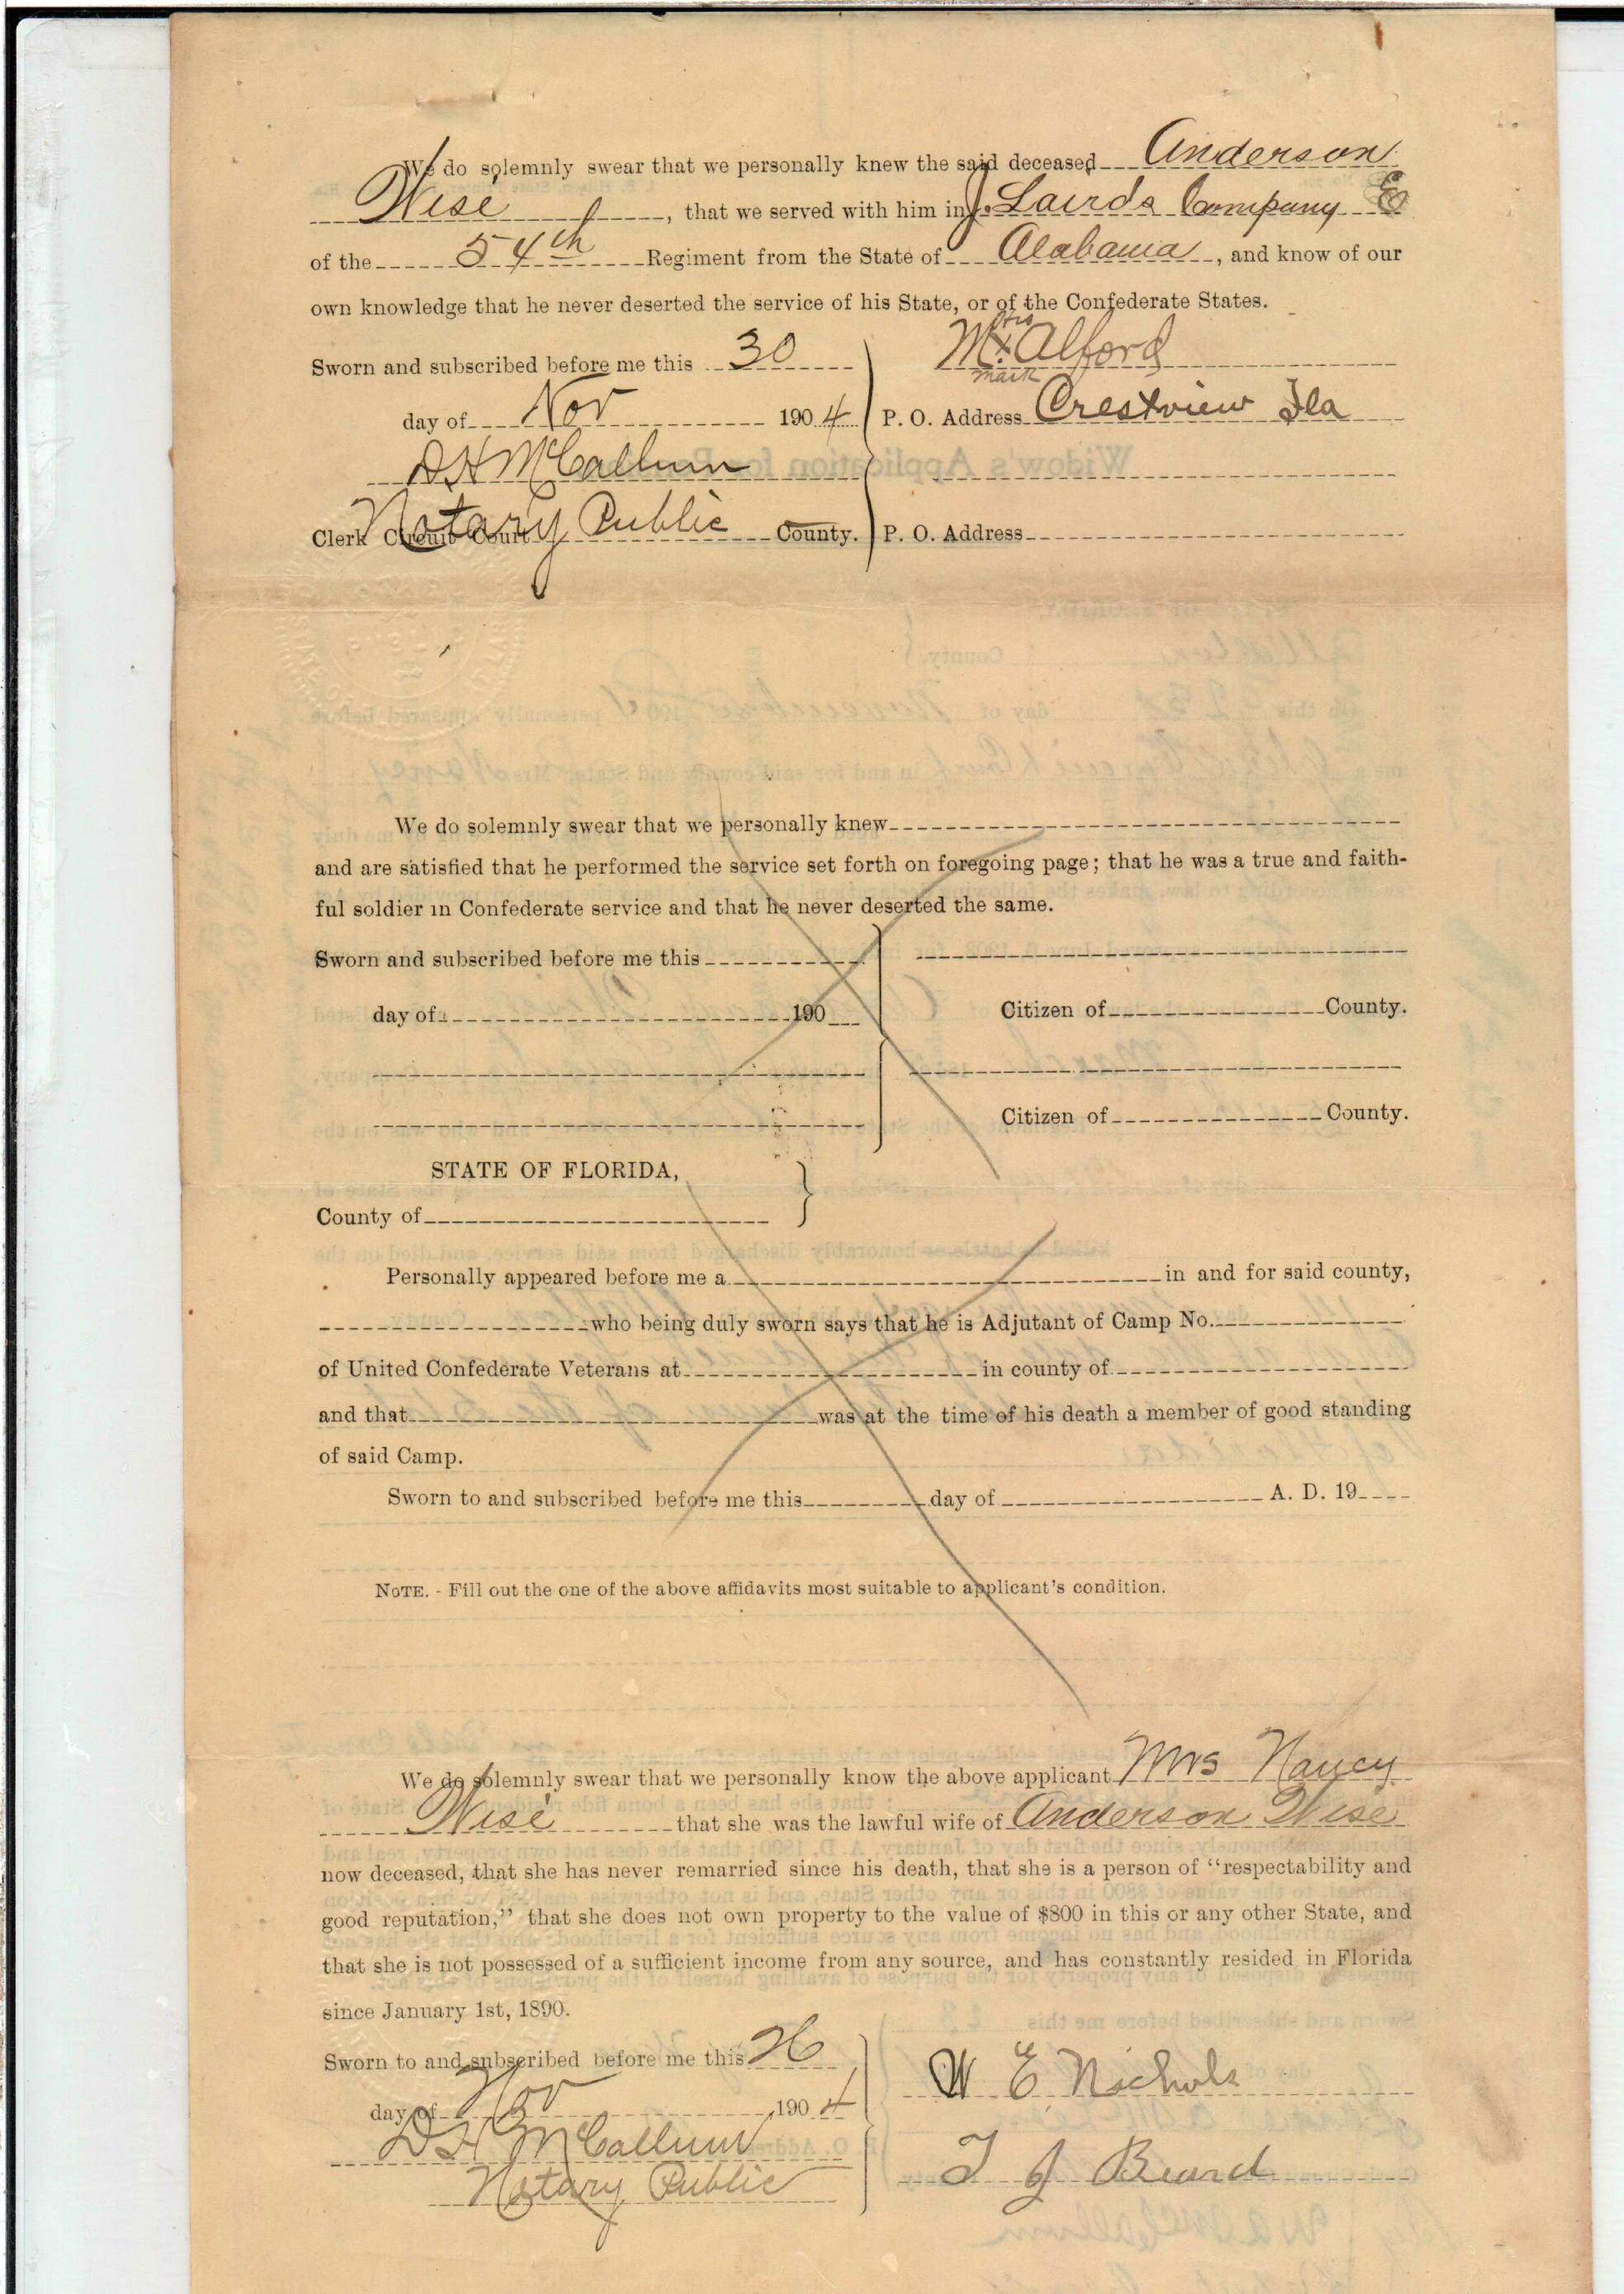 We do solemnly swear that we personally knew the said deceased Anderson
Wise, that we served with him in J. Lairds Company E
of the 54th Regiment from the State of Alabama, and know of our
own knowledge that he never deserted the service of his State, or of the Confederate States.
his
Sworn and subscribed before me this 30 M x Alford
mark
day of Nov 1904 P. O. Address Crestview Fla
D H McCallum
Clerk Circuit Court Notary Public County. P. O. Address
We do solemnly swear that we personally knew
and are satisfied that he performed the service set forth on foregoing page; that he was a true and faith-
ful soldier in Confederate service and that he never deserted the same.
Sworn and subscribed before me this
day of 190 Citizen of County.
Citizen of County.
STATE OF FLORIDA,
County of
Personally appeared before me a in and for said county,
who being duly sworn says that he is Adjutant of Camp No.
of United Confederate Veterans at in county of
and that was at the time of his death a member of good standing
of said Camp.
Sworn to and subscribed before me this day of A. D. 19
NOTE. - Fill out the one of the above affidavits most suitable to applicant's condition.
We do solemnly swear that we personally know the above applicant Mrs Nancy
Wise that she was the lawful wife of Anderson Wise
now deceased, that she has never remarried since his death, that she is a person of "respectability and
good reputation," that she does not own property to the value of $800 in this or any other State, and
that she is not possessed of a sufficient income from any source, and has constantly resided in Florida
since January 1st, 1890.
Sworn to and subscribed before me this 26 W E Nichols
day of Nov 1904
D H McCallum T J Beard
Notary Public